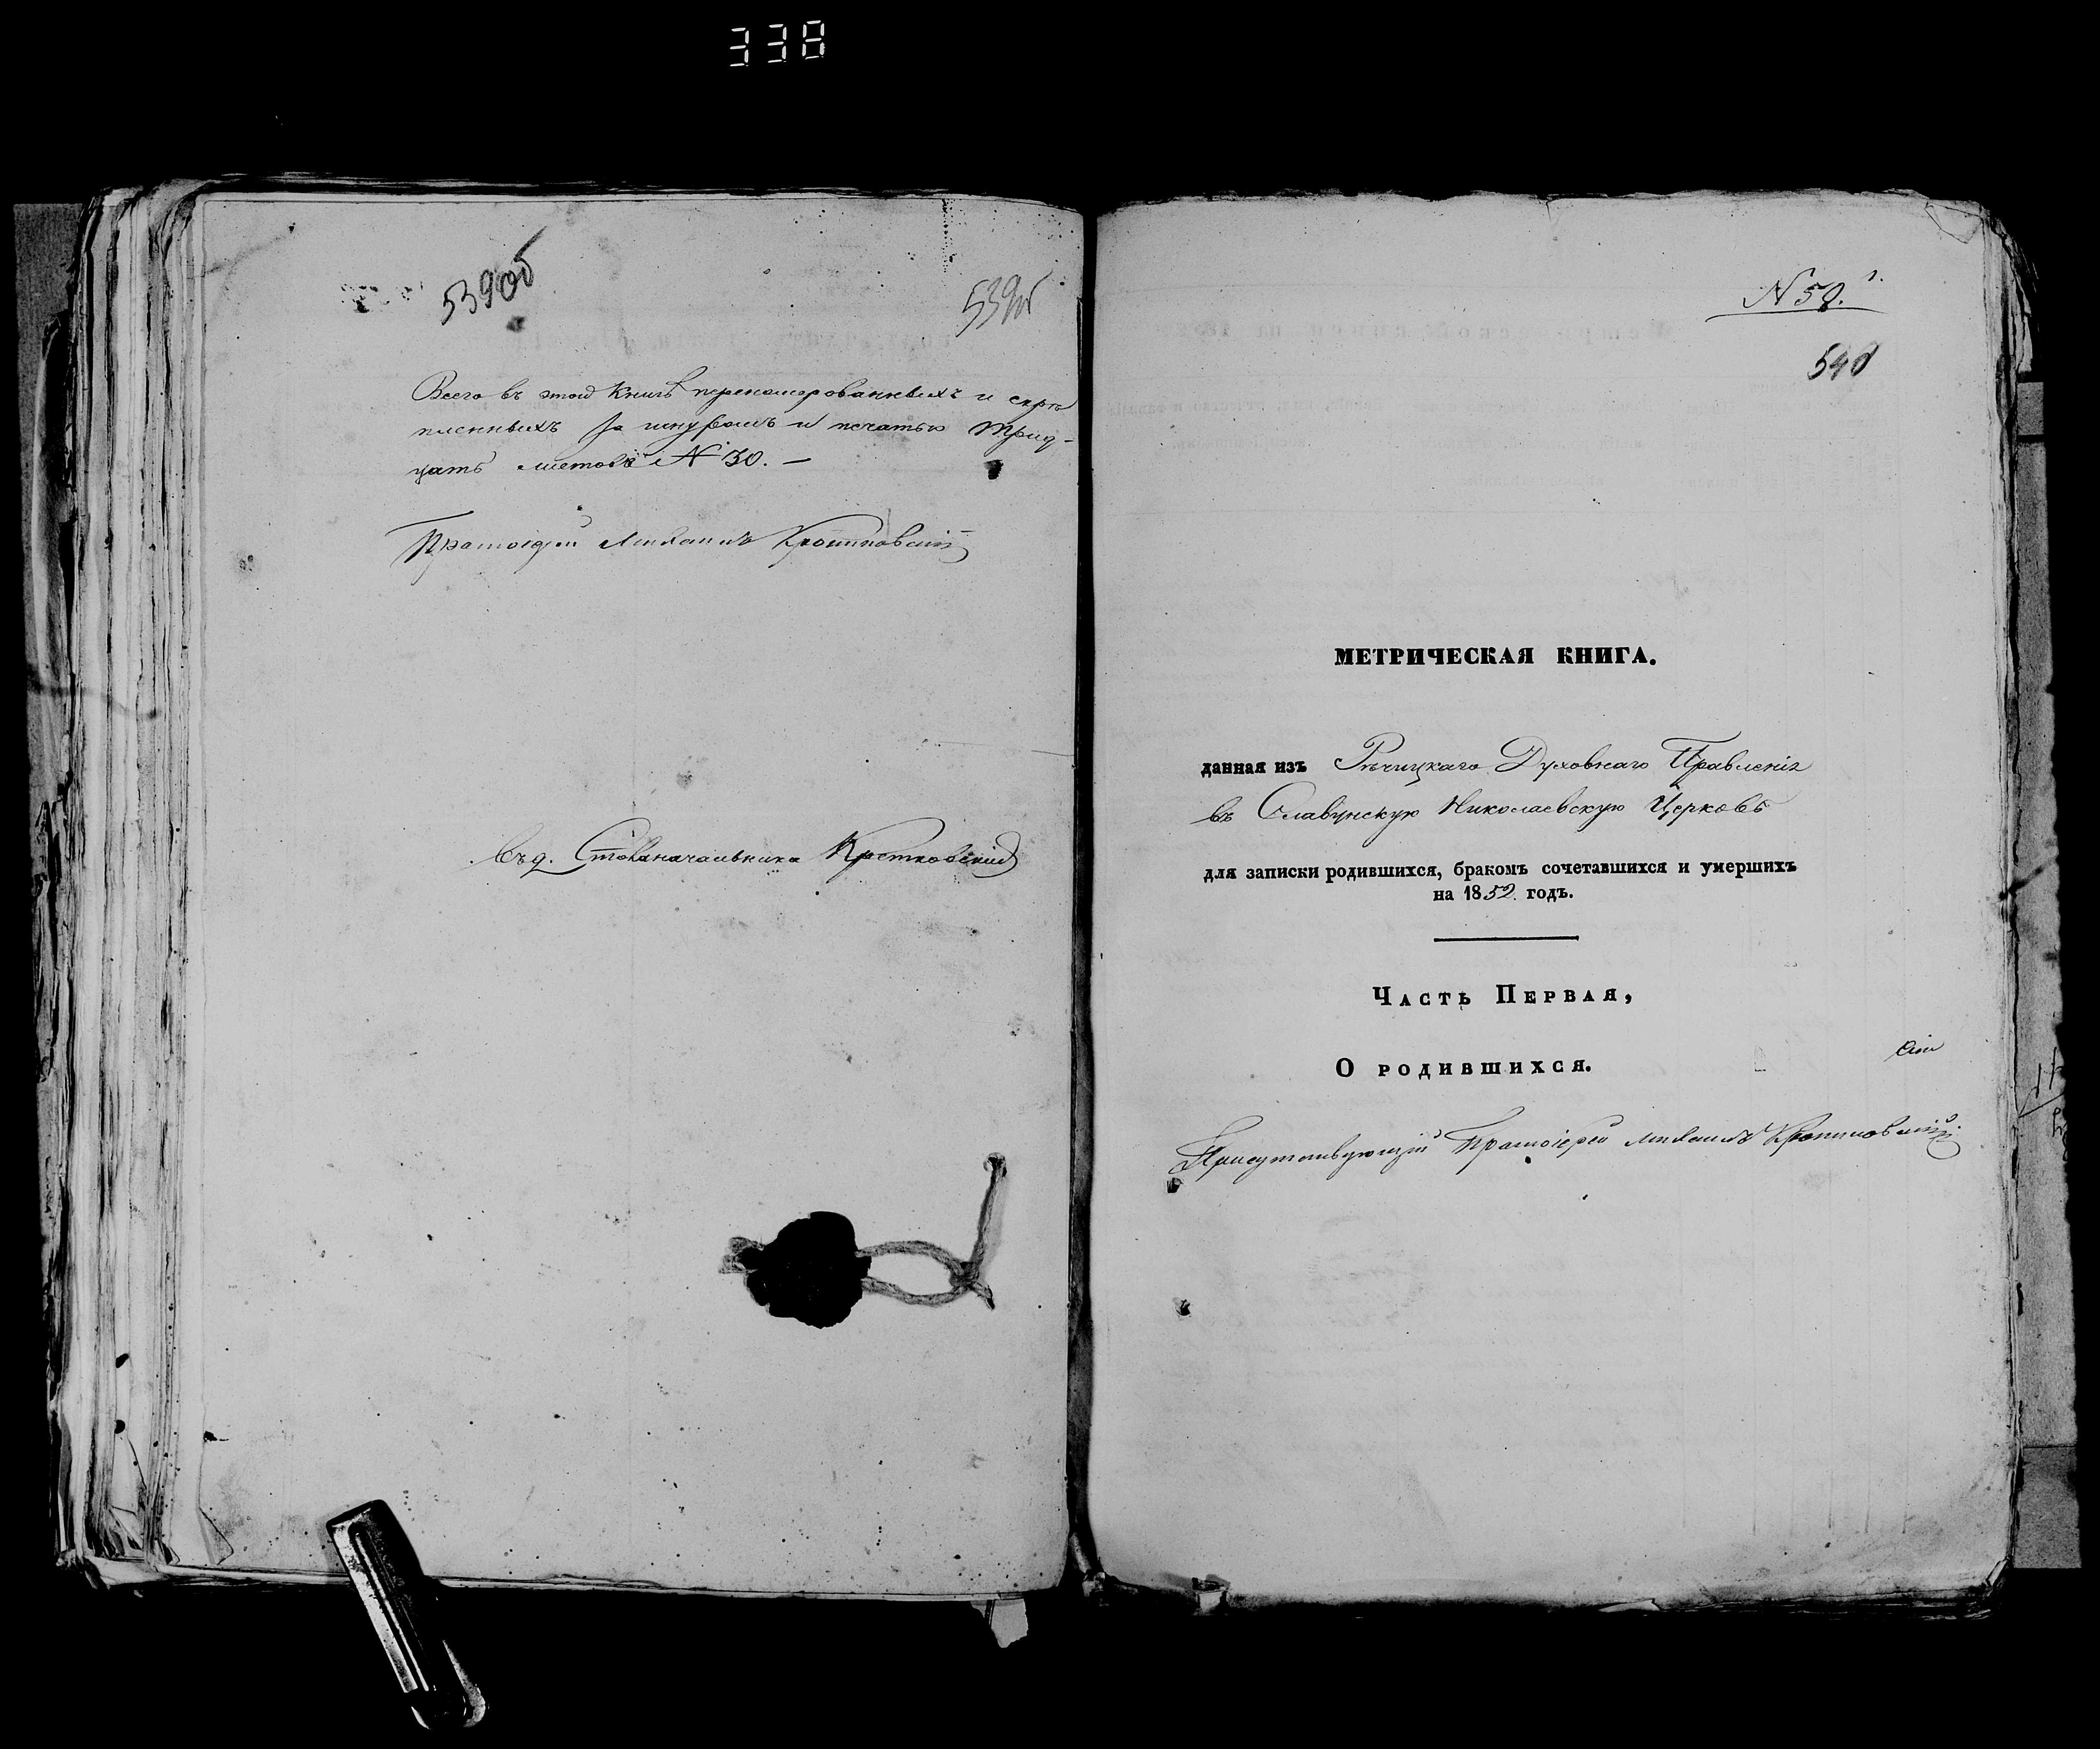 338
539об
539об
Всего въ этой Книгѣ перенумерованныхъ и скрѣ
пленныхъ за шнуромъ и печатью Трид-
цать листовъ N 30. —
Протоіерей Михаилъ
Столоначальника
N 50.
1.
540
МЕТРИЧЕСКАЯ КНИГА.
данная изъ Рѣчицкаго Духовнаго Правленія
въ Николаевскую Церковь
для записки родившихся, бракомъ сочетавшихся и умершихъ
на 1852. годъ.
Часть Первая,
О родившихся.
Присутствующій Протоіерей Михаилъ